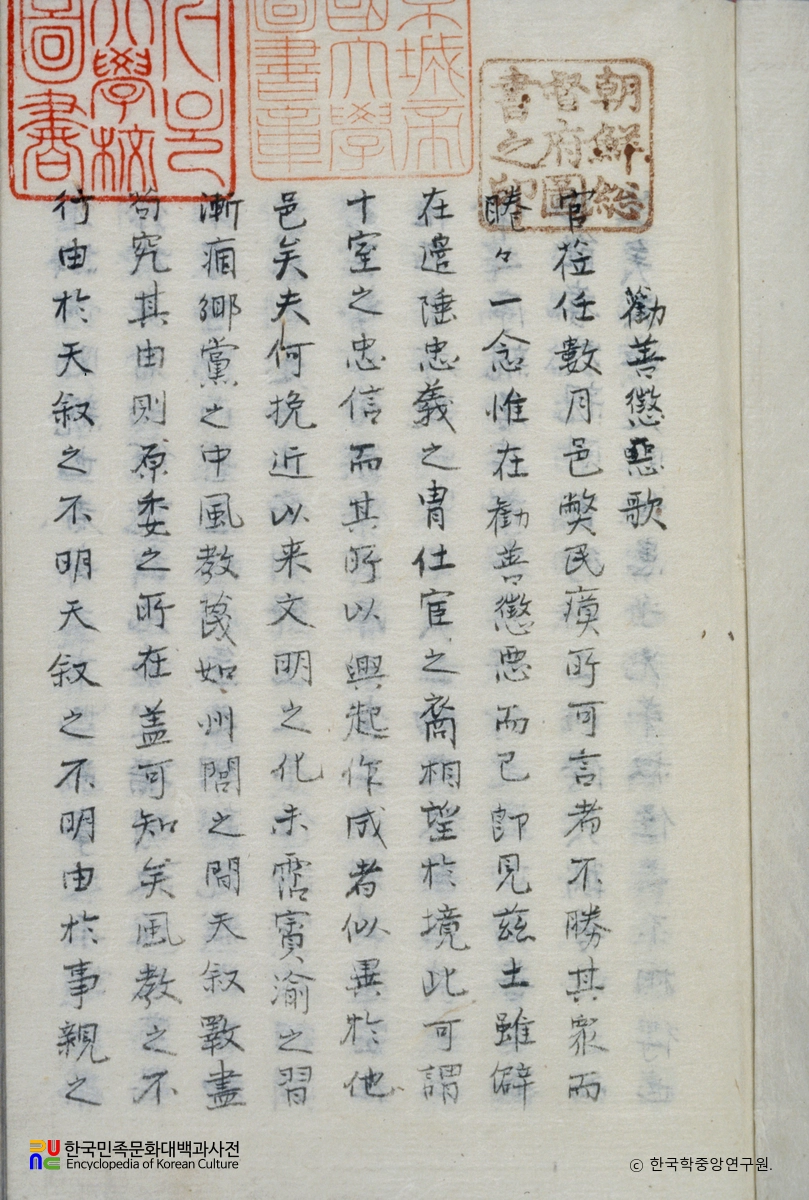 勸善懲惡歌
官莅任數月邑獘民瘼所可言者不勝其衆而
睠々一念惟在勸善懲惡而已卽見茲土雖僻
在邊陲忠義之冑仕宦之裔相望於境此可謂
十室之忠信而其所以興起作成者似異於他
邑矣夫何挽近以来文明之化未霑賓渝之習
漸痼鄉黨之中風教蔑如州閭之間天叙斁盡
苟究其由則原委之所在盖可知矣風教之不
行由於天叙之不明天叙之不明由於事親之
朝鮮総督府圖書之印
京城帝國大學圖書章
서울大學校圖書
한국민족문화대백과사전
Encyclopedia of Korean Culture
ⓒ 한국학중앙연구원.